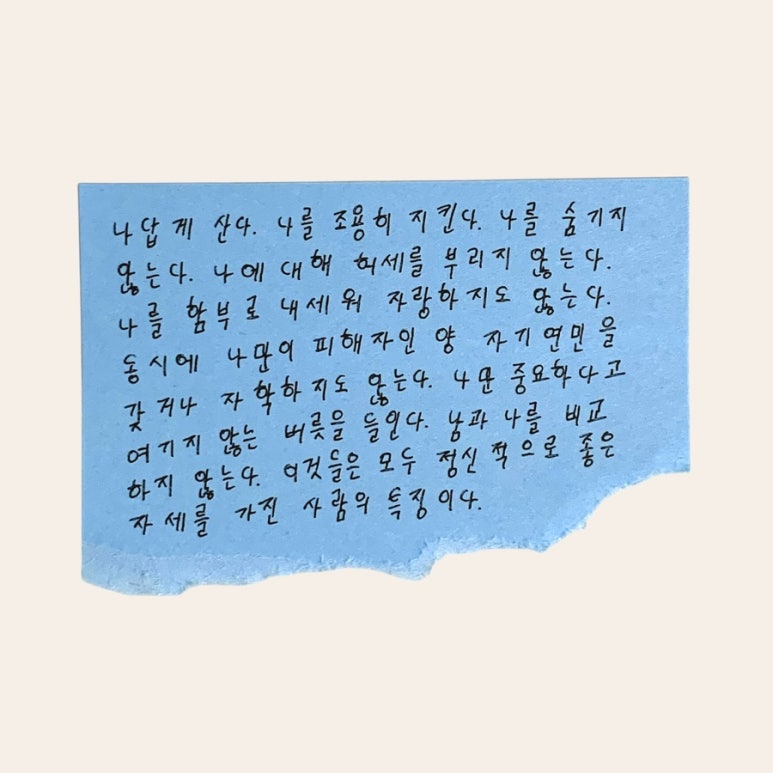 나답게 산다. 나를 조용히 지킨다. 나를 숨기지
않는다. 나에 대해 허세를 부리지 않는다.
나를 함부로 내세워 자랑하지도 않는다.
동시에 나만이 피해자인 양 자기연민을
갖거나 자학하지도 않는다. 나만 중요하다고
여기지 않는 버릇을 들인다. 남과 나를 비교
하지 않는다. 이것들은 모두 정신적으로 좋은
자세를 가진 사람의 특징이다.